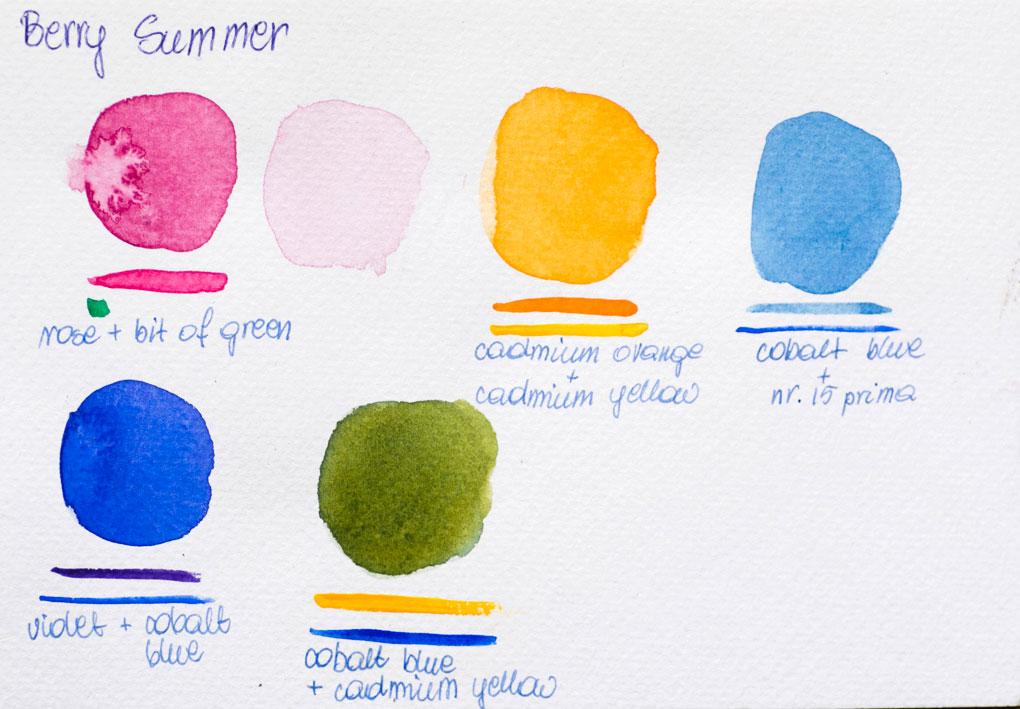 Berry Summer
rose + bit of green
cadmium orange
+
cadmium yellow
cobalt blue
+
nr. 15 prima
violet + cobalt
blue
cobalt blue
+ cadmium yellow